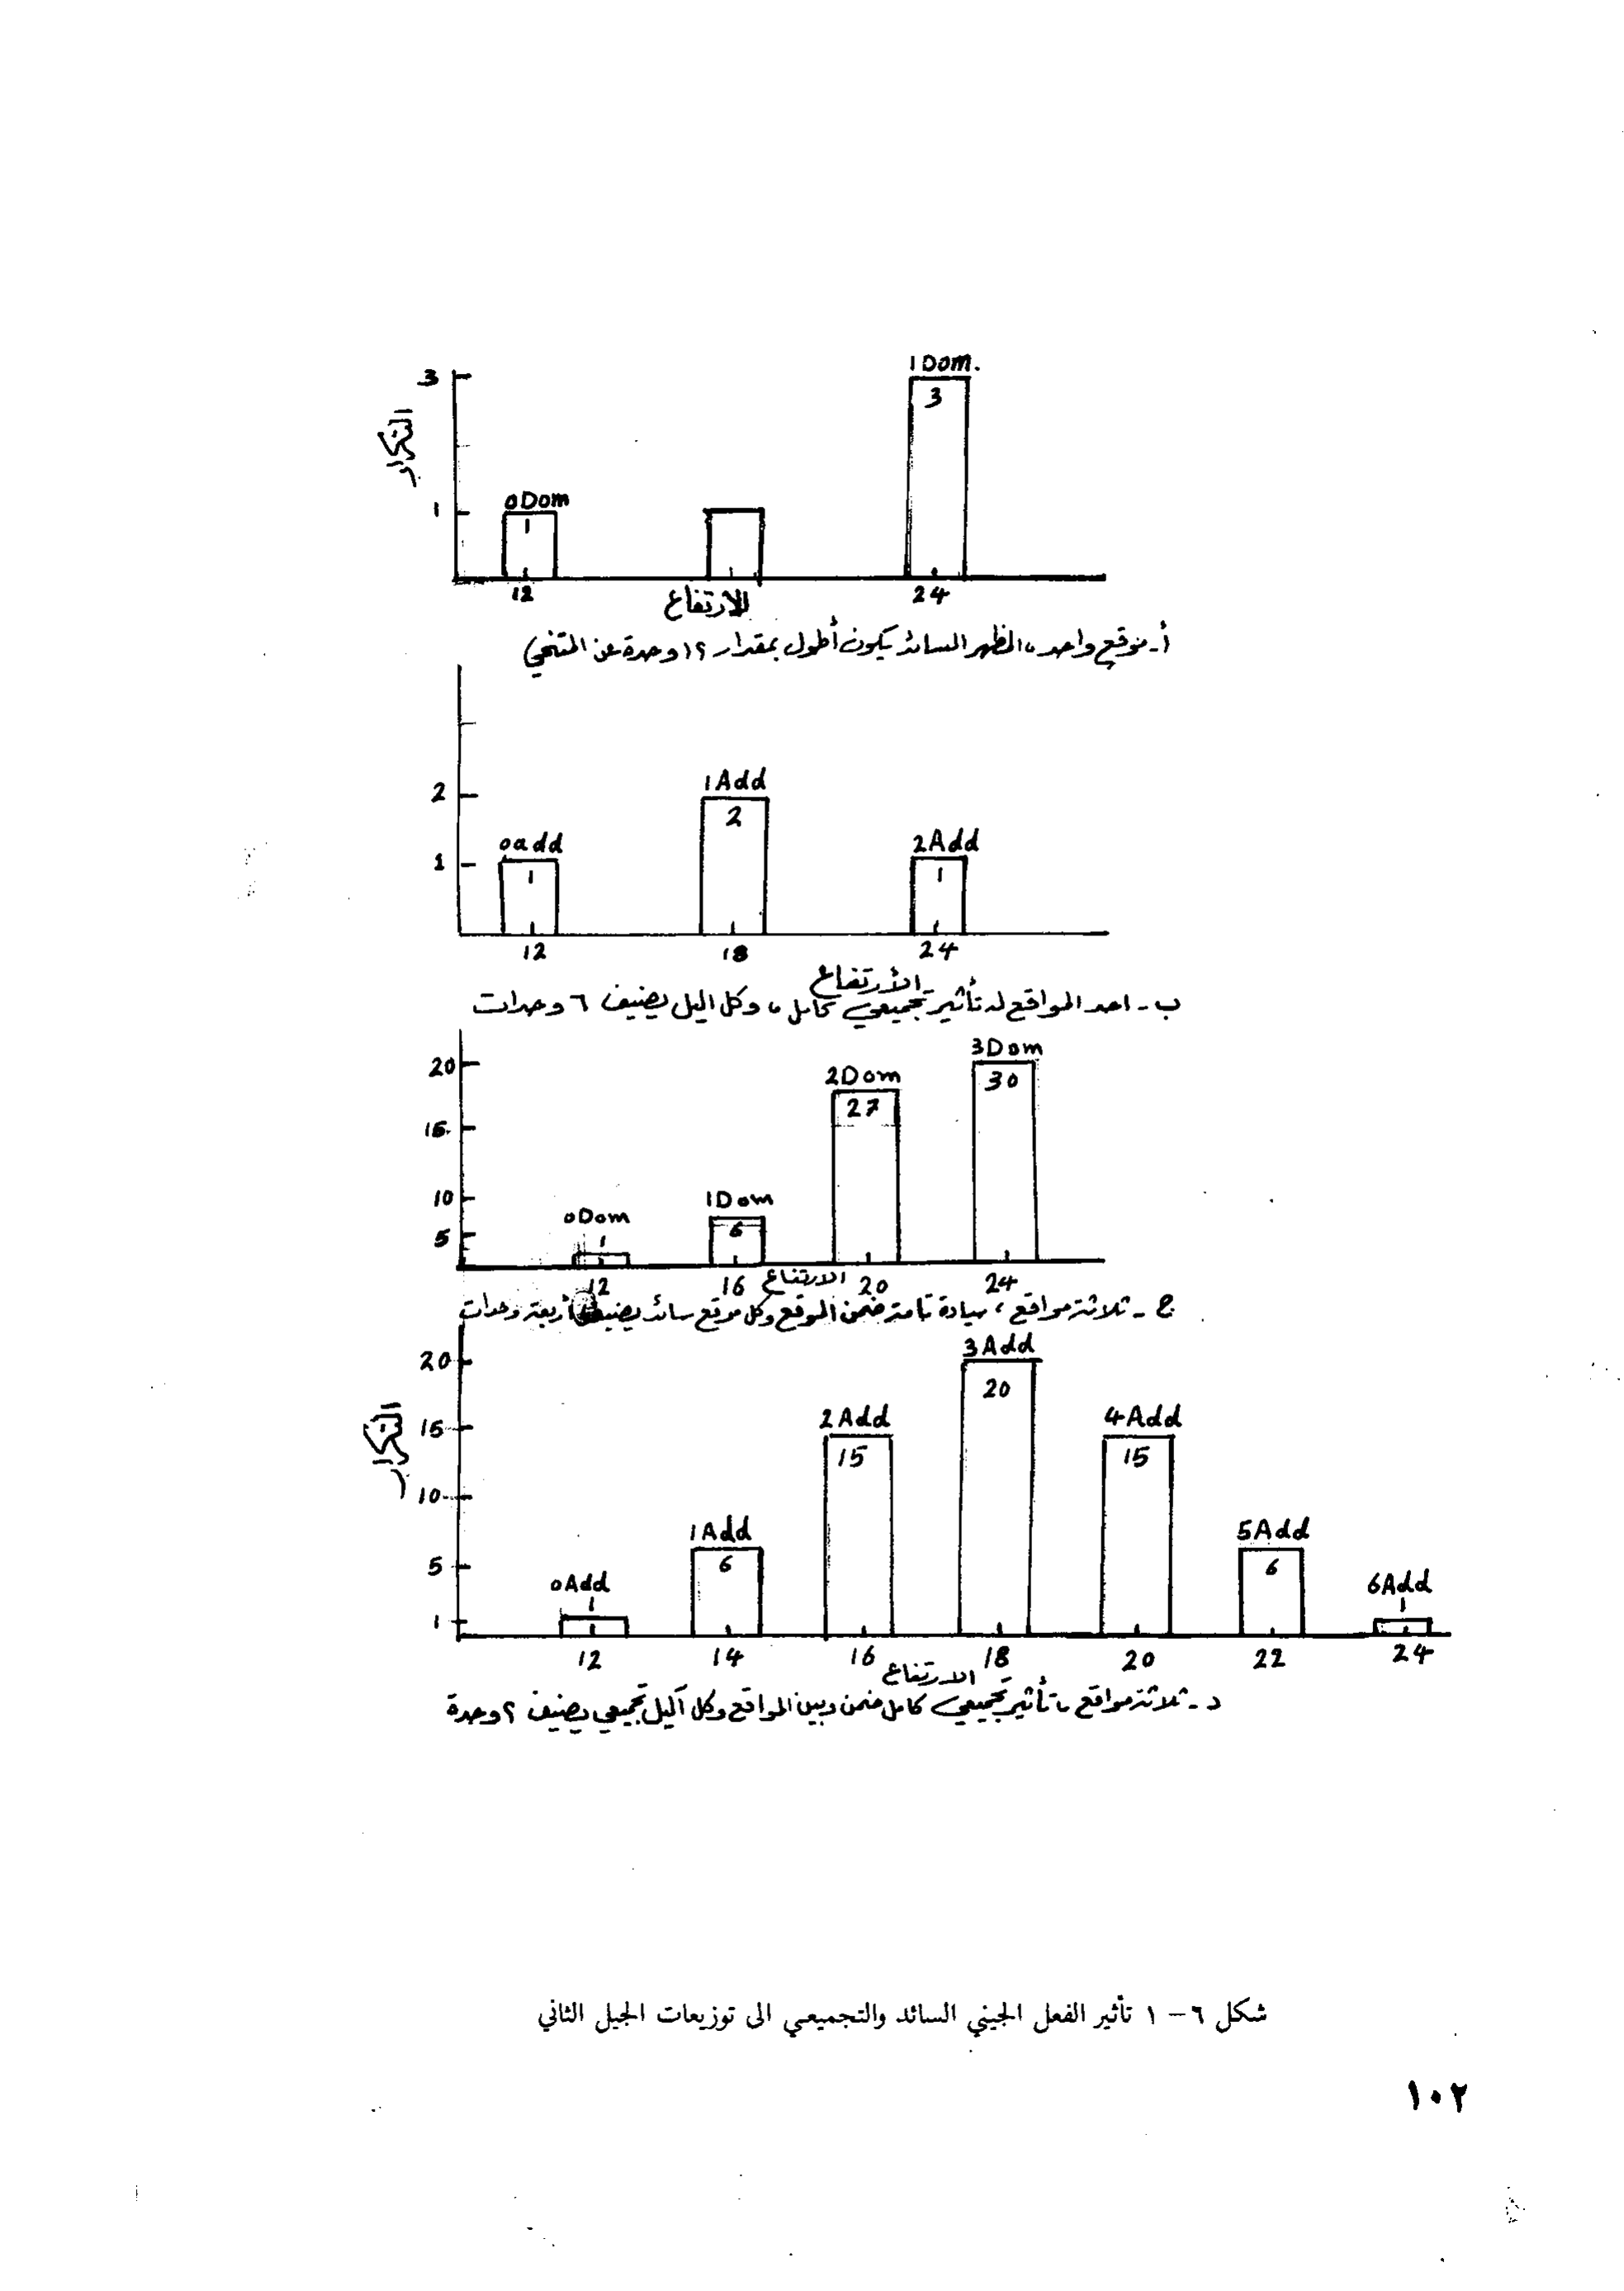 1 Dom.
3
3
التكرار
0Dom
1
1
12
24
الارتفاع
أ- موقع واحد، المظهر السائد يكون أطول بمقدار ١٢ وحدة عن المتنحي
1Add
2
2
0add
2Add
1
1
1
12
18
24
الأرتفاع
ب- احد المواقع له تأثير تجميعي كامل، وكل اليل يضيف ٦ وحدات
3Dom
20
30
2Dom
27
15
10
1Dom
0Dom
6
1
5
12
16
الارتفاع
20
24
ج- ثلاثة مواقع، سيادة تامة ضمن الموقع وكل موقع سائد يضيف أربعة وحدات
3Add
20
20
2Add
4Add
15
15
15
التكرار
10
1Add
5Add
5
6
6
0Add
6Add
1
1
1
12
14
16
18
20
22
24
الارتفاع
د- ثلاثة مواقع، تأثير تجميعي كامل ضمن وبين المواقع وكل آليل تجميعي يضيف ٢ وحدة
شكل ٦- ١ تأثير الفعل الجيني السائد والتجميعي الى توزيعات الجيل الثاني
١٠٢